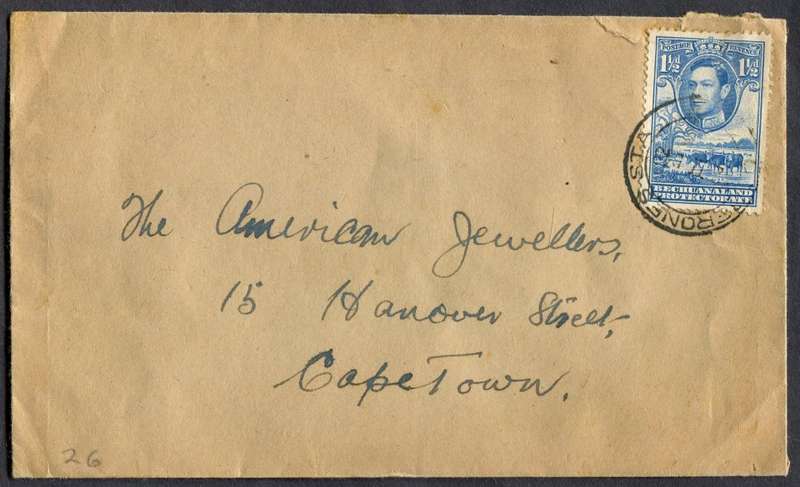 POSTAGE REVENUE
1½d 1½d
BECHUANALAND
PROTECTORATE
The American Jewellers,
15 Hanover Street,
Cape Town.
26